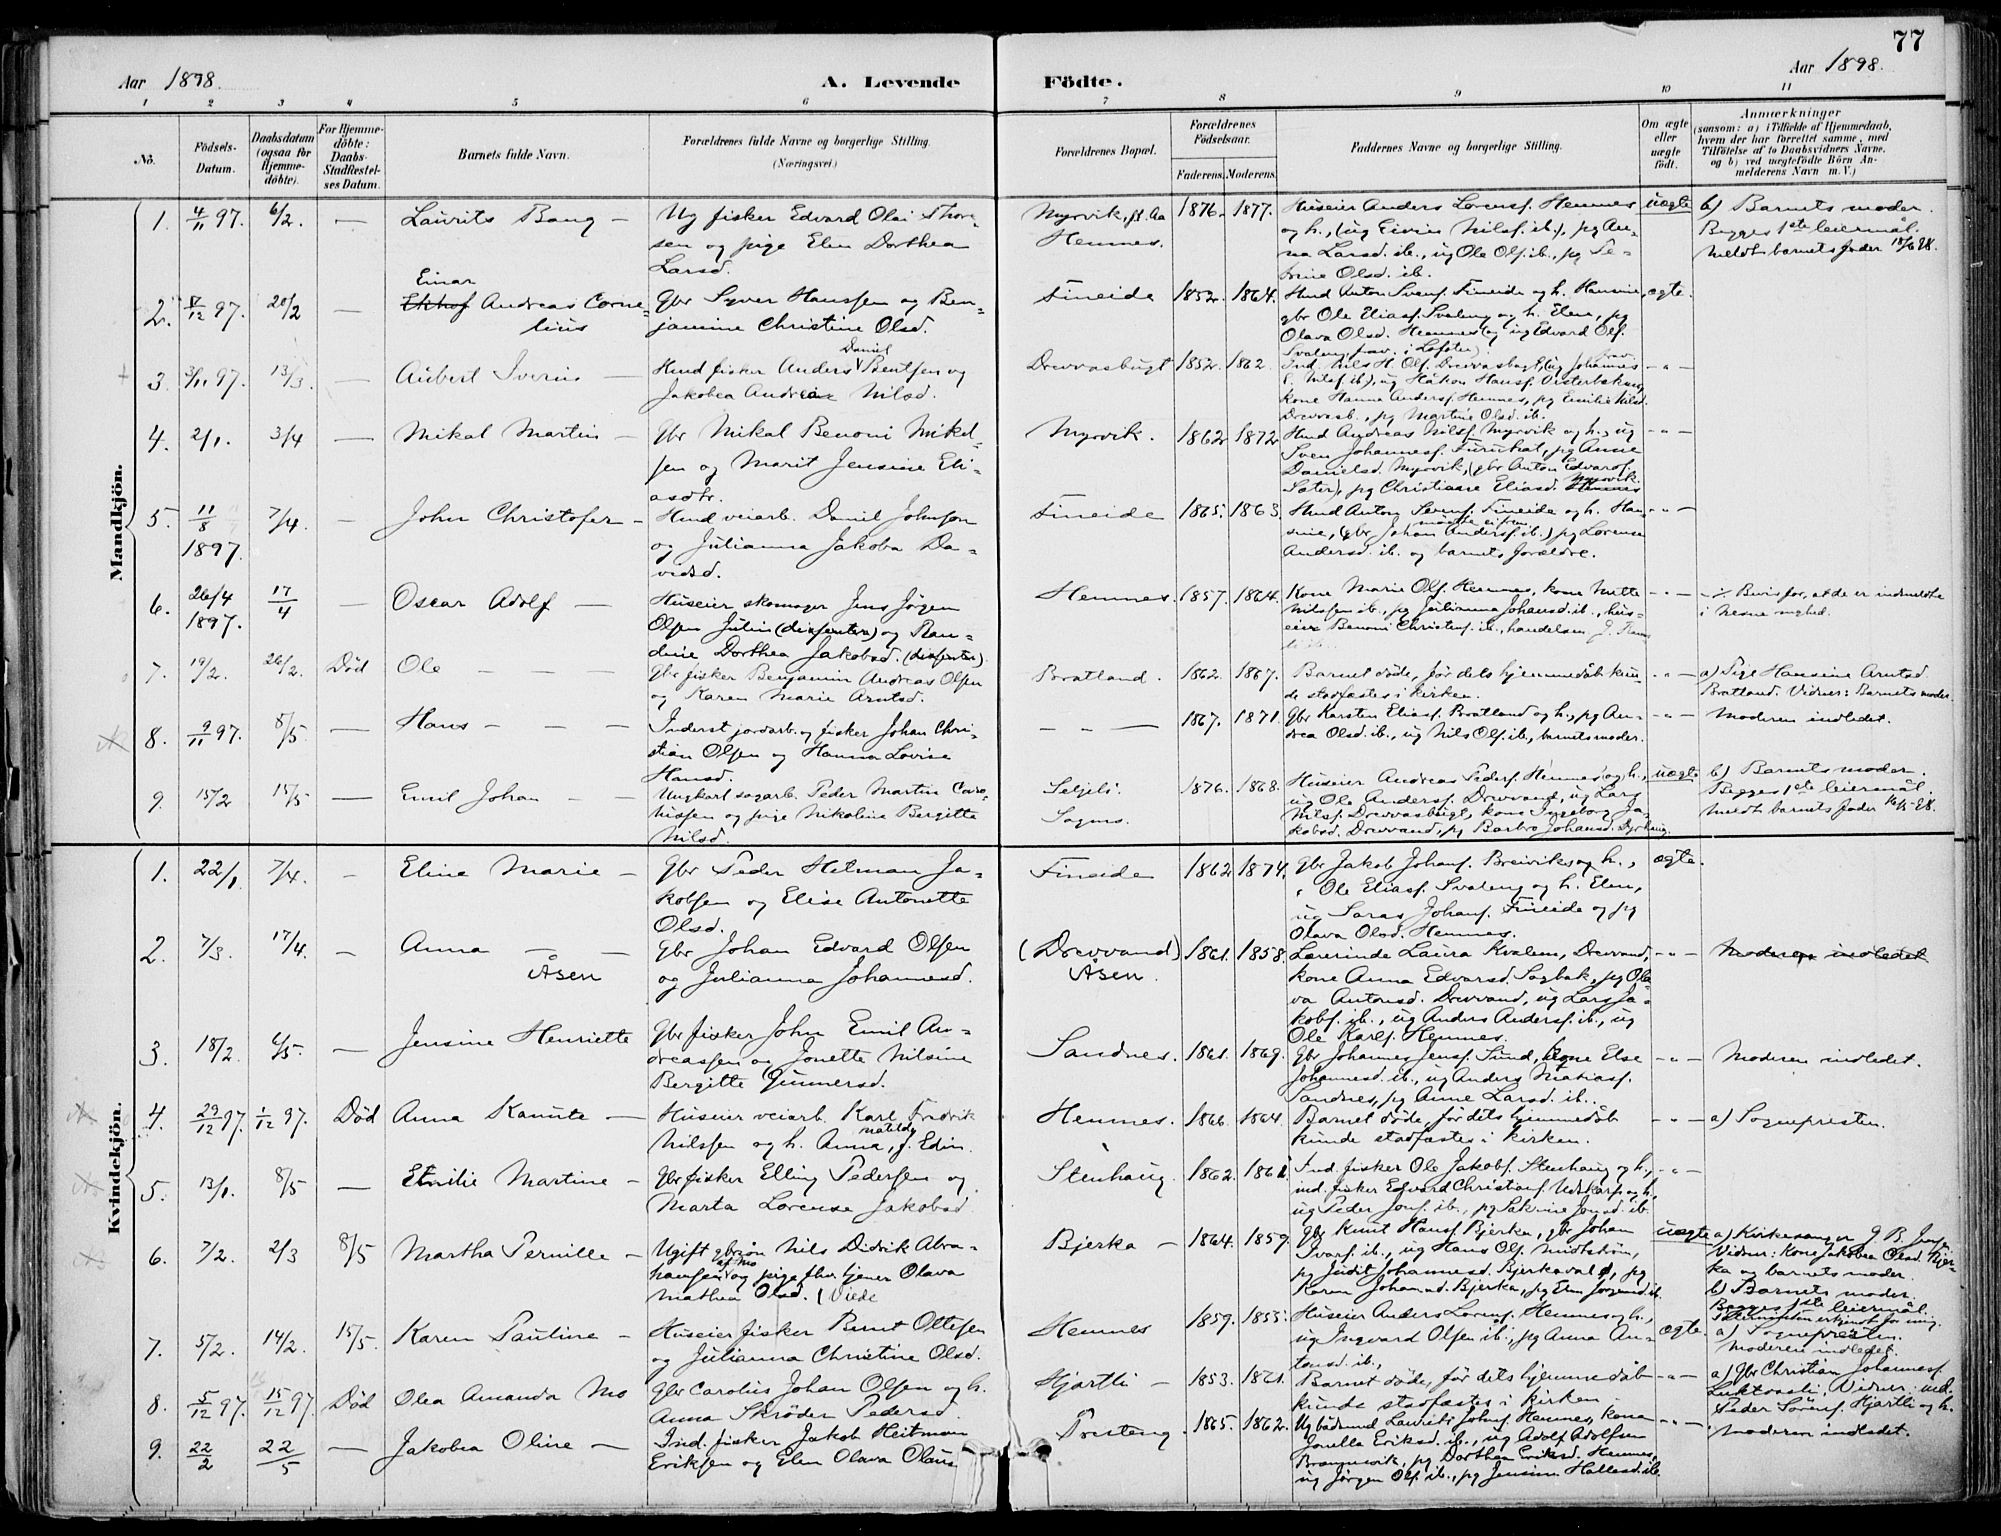 77
Aar 1898.
A. Levende Födte.
Aar 1898.
1 2 3 4 5 6 7 8 9 10 11
No.
Födsels-Datum.
Daabsdatum (ogsaa for Hjemmedöbte).
For Hjemmedöbte: Daabs-Stadfæstelses Datum.
Barnets fulde Navn.
Forældrenes fulde Navne og borgerlige Stilling.
(Næringsvei.)
Forældrenes Bopæl.
Forældrenes Födselsaar.
Faderens. Moderens.
Faddernes Navne og borgerlige Stilling.
Om ægte eller uægte födt.
Anmærkninger
(saasom: a) i Tilfælde af Hjemmedaab, hvem der har forrettet samme, med Tilföielse af to Daabsvidners Navne, og b) ved uægtefödte Börn Anmelderens Navn m. V.)
Mandkjön.
1. 4/11 97. 6/2. — Laurits Bang —
Ug fisker Edvard Olai Thorsen og pige Elen Dorthea Larsd.
Myrvik, Hemnes. 1876. 1877.
Huseier Anders Lorensf. Hemnes og h., (ug Eivin Nilsf. ib.), pg Anna Larsd. ib., ug Ole Olsf. ib., pg Petrine Olsd. ib.
uægte
b) Barnets moder. Begges 1ste leiermål. Meldt barnets fader 18/6 98.
2. 8/12 97. 20/2 — Einar Andreas Cornelius
Gbr Syver Hanssen og Benjamine Christine Olsd.
Fineide 1852. 1864.
Hmd Anton Svensf. Fineide og h. Hansine, gbr Ole Eliasf. Svaleng og h. Elen, pg Olava Olsd. Hemnes (og ug Edvard Olsf. Svaleng, frav. i Lofoten).
ægte.
3. 3/11 97. 13/3. — Aubert Iverin —
Hmd fisker Anders Daniel Bentsen og Jakobea Andrea Nilsd.
Drevvasbugt 1852. 1862.
— " —
4. 2/1. 3/4 — Mikal Martin —
Gbr Mikal Benoni Mikelsen og Marit Jensine Eliasdtr.
Myrvik. 1862 1872
Hmd Andreas Nilsf. Myrvik og h., ug Sven Johannesf. Furuhat, pg Anne Danielsd. Myrvik, (gbr Anton Edvardsf. Sæter), pg Christiane Eliasd. Myrvik
— " —
5. 11/8 1897. 7/4. — John Christofer —
Hmd veiarb. Daniel Johnsen og Julianna Jakoba Davidsd.
Fineide 1865. 1863.
Hmd Anton Svensf. Fineide og h. Hansine, (gbr Johan Andersf. ib.) mødte ei frem, pg Lorense Andersd. ib. og barnets forældre.
— " —
6. 26/4 1897. 17/4 — Oscar Adolf —
Huseier, skomager Jens Jörgen Olsen Julin (dissenter) og Randine Dorthea Jakobsd. (dissenter).
Hemnes. 1857. 1864.
— " —
Bevis for, at de er indmeldte i Nesne mghed.
7. 19/2. 26/2. Död Ole — — —
Gbr fisker Benjamin Andreas Olsen og Karen Marie Arntsd.
Bratland. 1862. 1867.
Barnet döde, för dets hjemmedåb kunde stadfæstes i kirken.
— " —
a) Pige Hansine Arntsd. Bratland. Vidner: Barnets moder
8. 9/11 97. 8/5 — Hans — — —
Inderst jordarb. og fisker Johan Christian Olsen og Hanna Lovise Hansd.
— — — 1867. 1871.
Gbr Karsten Eliasf. Bratland og h., pg Andrea Olsd. ib., ug Nils Olsf. ib., barnets moder.
— " —
Moderen indledet.
9. 15/2 15/5 — Emil Johan —
Ungkarl sagarb. Peder Martin Corneliussen og pige Nikoline Bergitte Nilsd.
Seljeli. Sogns. 1876. 1868.
Huseier Andreas Pedersf. Hemnes og h., ug Ole Andersf. Drevvand, ug Lars Nilsf. Drevvasbugt, kone Ingeborg Jakobsd. Drevvand, pg Barbro Johansd. Dyrhaug.
uægte
b) Barnets moder. Begges 1ste leiermål. Meldt barnets fader 16/5 98.
Kvindekjön.
1. 22/1 7/4. — Eline Marie —
Gbr Peder Hetman Jakobsen og Elise Antonette Olsd.
Fineide 1862 1874.
Gbr Jakob Johansf. Breivik og h., Ole Eliasf. Svaleng og h. Elen, ug Saras Johansf. Fineide og pg Olava Olsd. Hemnes.
ægte.
2. 7/3. 17/4. — Anna — Åsen
Gbr Johan Edvard Olsen og Julianna Johannesd.
(Drevvand) Åsen. 1861. 1858.
Lærerinde Laura Kvalem, Drevvand, kone Anna Edvardsd. Sagbak, pg Olava Antonsd. Drevvand, ug Lars Jakobsf. ib., ug Anders Andersf. ib., ug Ole Karlsf. Hemnes.
— " —
Moderen indledet
3. 18/2. 6/5. — Jensine Henriette
Gbr fisker John Emil Andreassen og Jonette Nilsine Bergitte Gunnersd.
Sandnes. 1861. 1869.
Gbr Johannes Jensf. Sund, kone Else Johannesd. ib., ug Anders Matiasf. Sandnes, pg Anne Larsd. ib.
— " —
Moderen indledet.
4. 29/12 97. 1/12 97. Död Anna Kanute —
Huseier veiarb. Karl Fredrik Nilssen og h. Anna Matilde, f. Edin.
Hemnes. 1866. 1864.
Barnet döde, för dets hjemmedåb kunde stadfæstes i kirken.
— " —
a) Sognepresten.
5. 13/1. 8/5 — Emilie Martine —
Gbr fisker Elling Pedersen og Marta Lorense Jakobsd.
Stenhaug. 1862. 1861
Ind. fisker Ole Jakobsf. Stenhaug og h., ind. fisker Edvard Christiansf. Utskarp og h., ug Peder Jonsf. ib., pg Petrine Jonsd. ib.
— " —
6. 7/2. 2/3 8/5 Martha Pernille —
Ugift gbrsön Nils Didrik Abrahamsen af Mo og pige fhv. tjener Olava Mathea Olsd. (Viede
Bjerka — 1864. 1859
Gbr Knut Hansf. Bjerka, gbr Johan Ivarsf. ib., ug Hans Olsf. Midtström, pg Judit Johannesd. Bjerkadal, pg Karen Johansd. Bjerka, pg Elen Jörgensd. ib.
uægte
a) Kirkesanger J. B. Jensen Vidner: Kone Jakobea Olsd. Bjerka og barnets moder. b) Barnets moder. Begges 1ste leiermål.
7. 5/2. 14/2. 15/5. Karen Pauline —
Huseier fisker Bernt Ottesen og Julianna Christine Olsd.
Hemnes 1859. 1855.
Huseier Anders Lorensf. Hemnes og h., ug Ingvard Olsen ib., pg Anna Antonsd. ib.,
ægte.
a) Sognepresten. Moderen indledet.
8. 5/12 97. 15/12 97. Död Olea Amanda Mo
Gbr Carolius Johan Olsen og h. Anna Skröder Pedersd.
Hjartli — 1853. 1861.
Barnet döde, för dets hjemmedåb kunde stadfæstes i kirken.
— " —
a) Gbr Christian Johannesf. Luktvasli, Vidner: ind. Peder Sörensf. Hjartli og h.
9. 22/2 22/5 — Jakobea Oline —
Ind. fisker Jakob Heitman Eriksen og Elen Olava Olaus
Presteng. 1865. 1862.
Ug bådmd Laurits Johnsf. Hemnes, kone Jonella Eriksd. ib., ug Adolf Adolfsen Brennesvik, pg Dorthea Eriksd. Hemnes, ug Jörgen Olsf. ib., pg Jensine Hallesd. ib.
— " —
Moderen indledet.